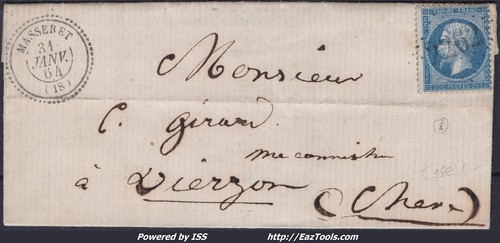 MASSERET
31
JANV.
64
(18)
EMPIRE FRANC
20C POSTES 20C
Monsieur
C. Girard
à Vierzon
(Cher)
(3)
Powered by ISS http://EazTools.com